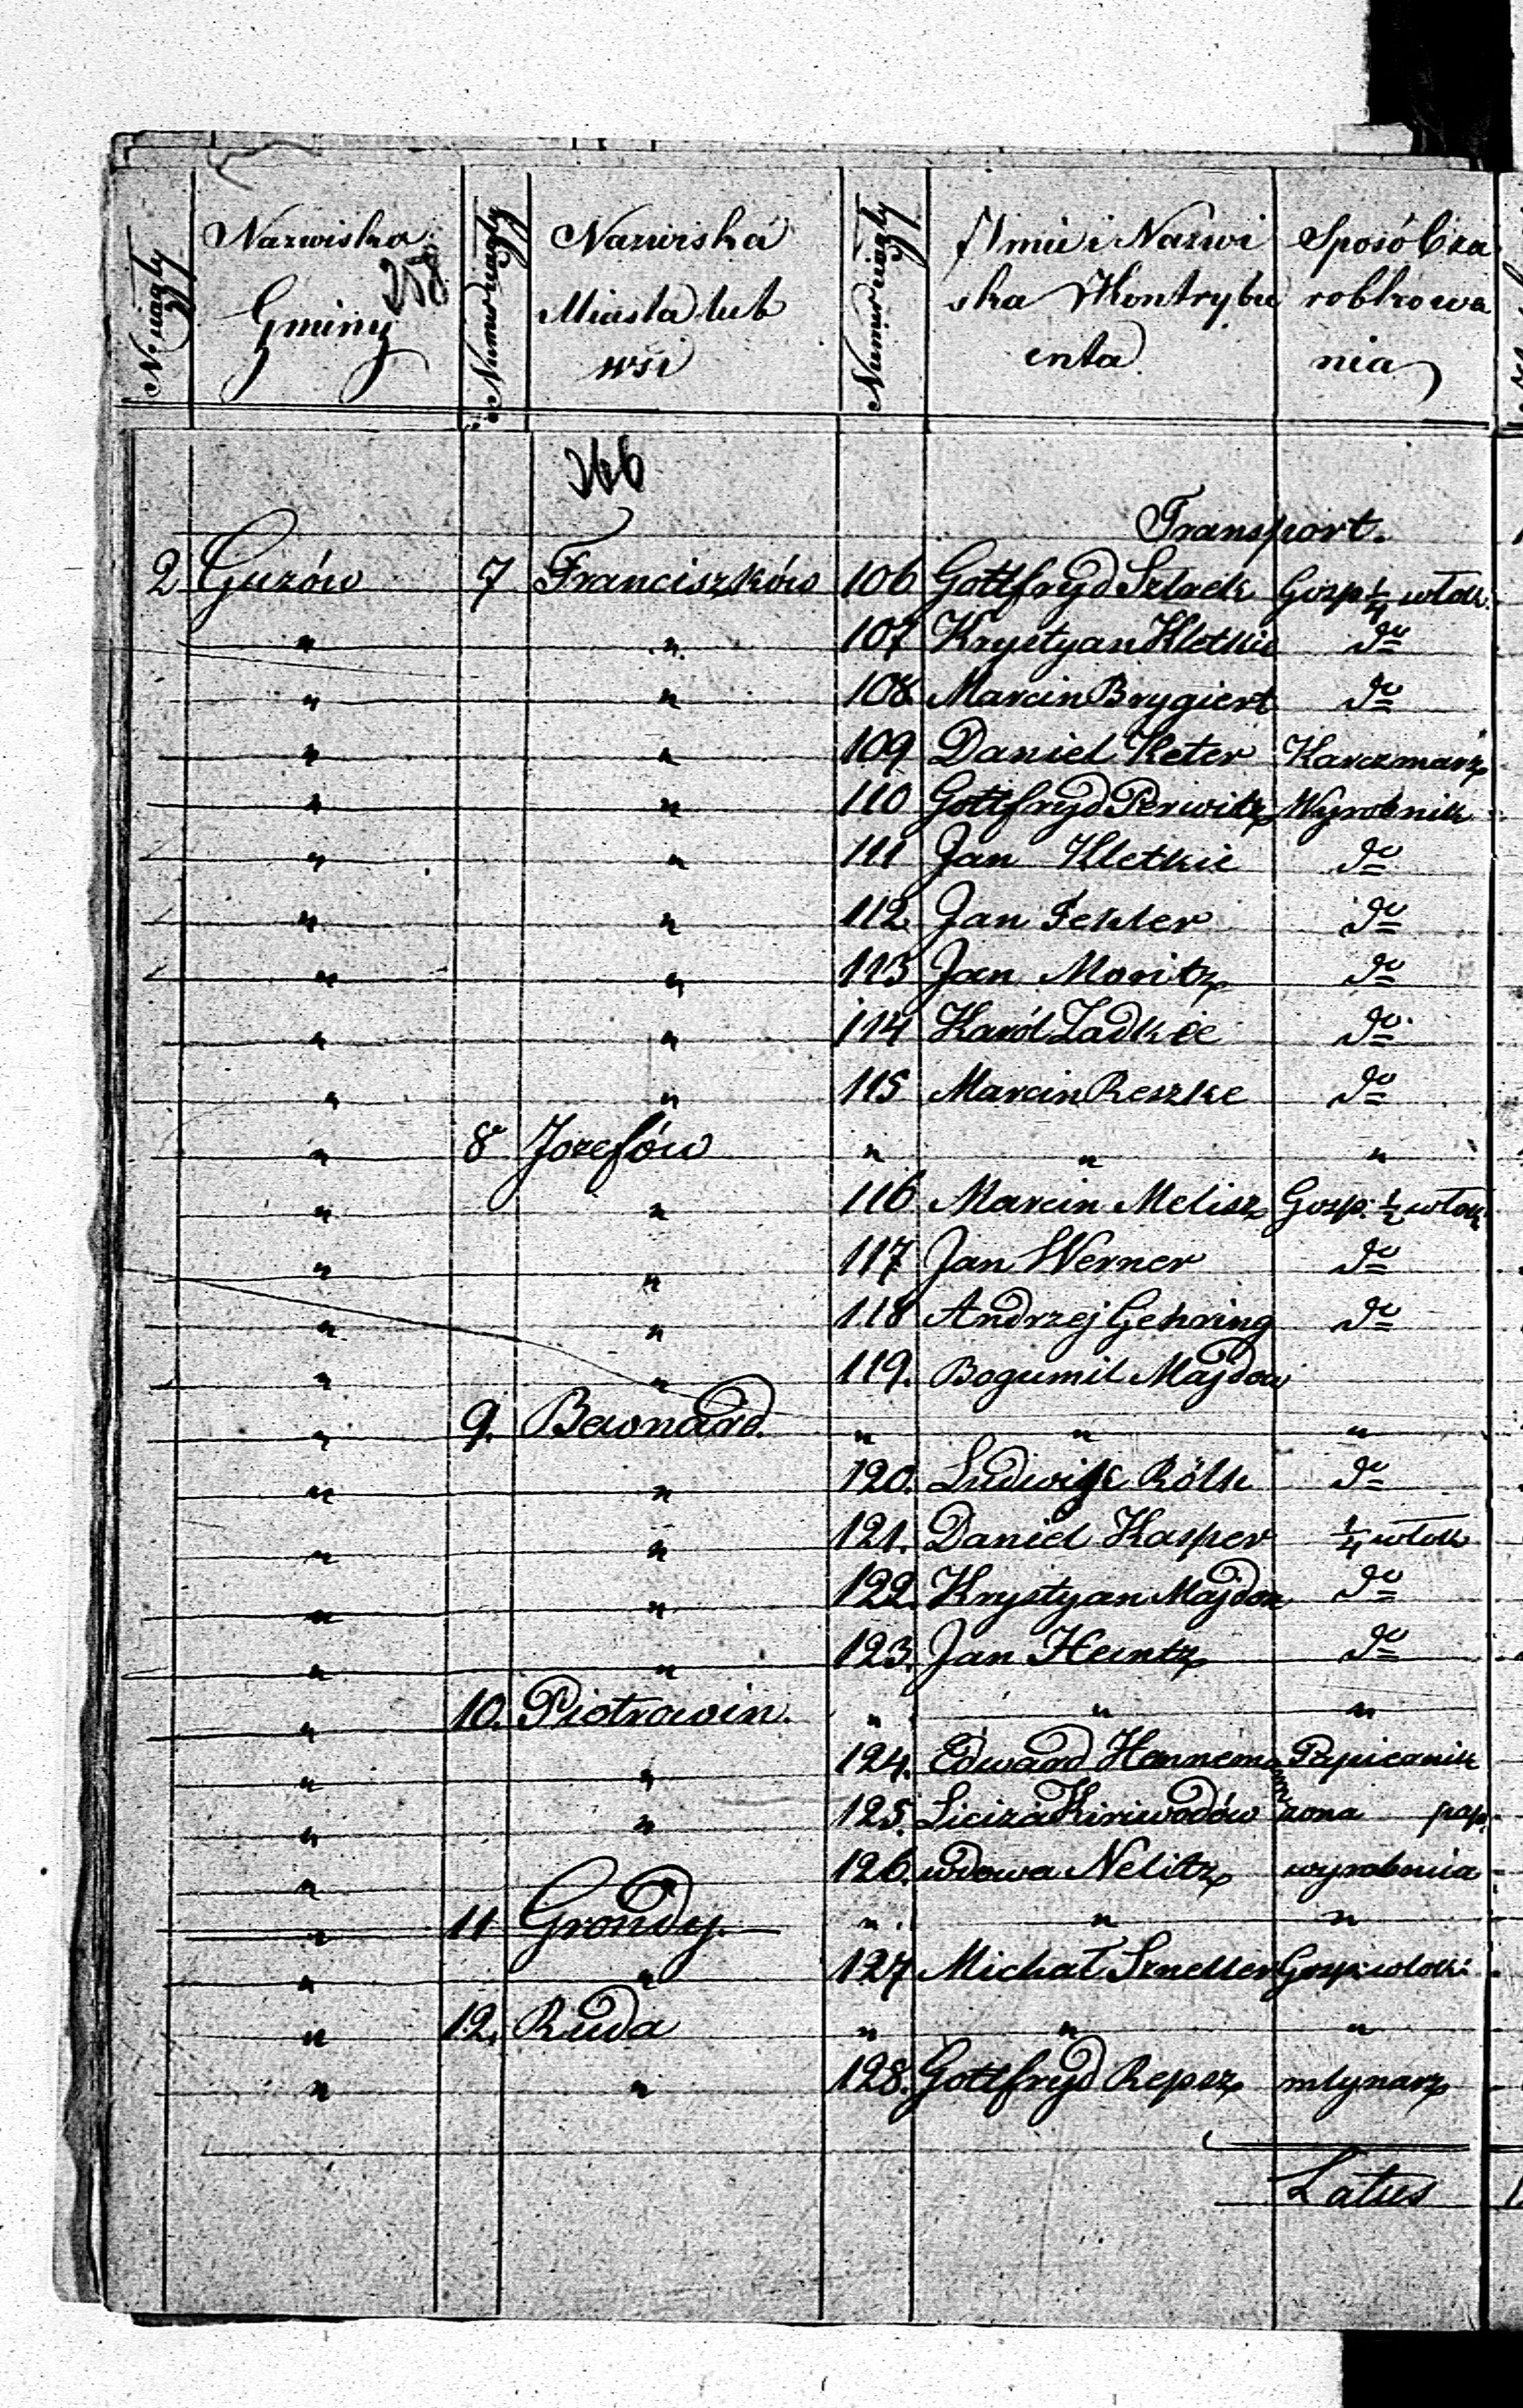 N. ciągły Nazwiska Gminy Numer ciągły Nazwiska Miasta lub wsi Numer ciągły Imie i Nazwiska Kontrybuenta Sposób zarobkowania
258
266
Transport.
2 Guzów 7 Franciszków 106 Gottfryd Sztrek Gosp ¼ włok.
" " 107 Krystyan Kletkie do
" " 108 Marcin Brygiert do
" " 109 Daniel Keter Karczmarz
" " 110 Gottfryd Perwitz Wyrobnik
" " 111 Jan Kletkie do
" " 112 Jan Fekler do
" " 113 Jan Moritz do
" " 114 Karól Ladkie do
" " 115 Marcin Reszke do
" 8 Jozefów " " "
" " 116 Marcin Melisz Gosp. ½ włok.
" " 117 Jan Werner do
" " 118 Andrzej Gehring do
" " 119. Bogumil Majdow
" 9. Bernard. " " "
" " 120. Ludwik Rölk do
" " 121. Daniel Kasper ¼ włok
" " 122. Krystyan Majdon do
" " 123. Jan Heintz do
" 10. Piotrowin. " " "
" " 124. Edward Hennemann
" " 125. żona pap.
" " 126. wdowa Nelitz wyrobnica
" 11 Grondy. " " "
" " 127 Michał Szneller Gosp. włok.
" 12. Ruda " " "
" " 128. Gottfryd Repsz młynarz
Latus